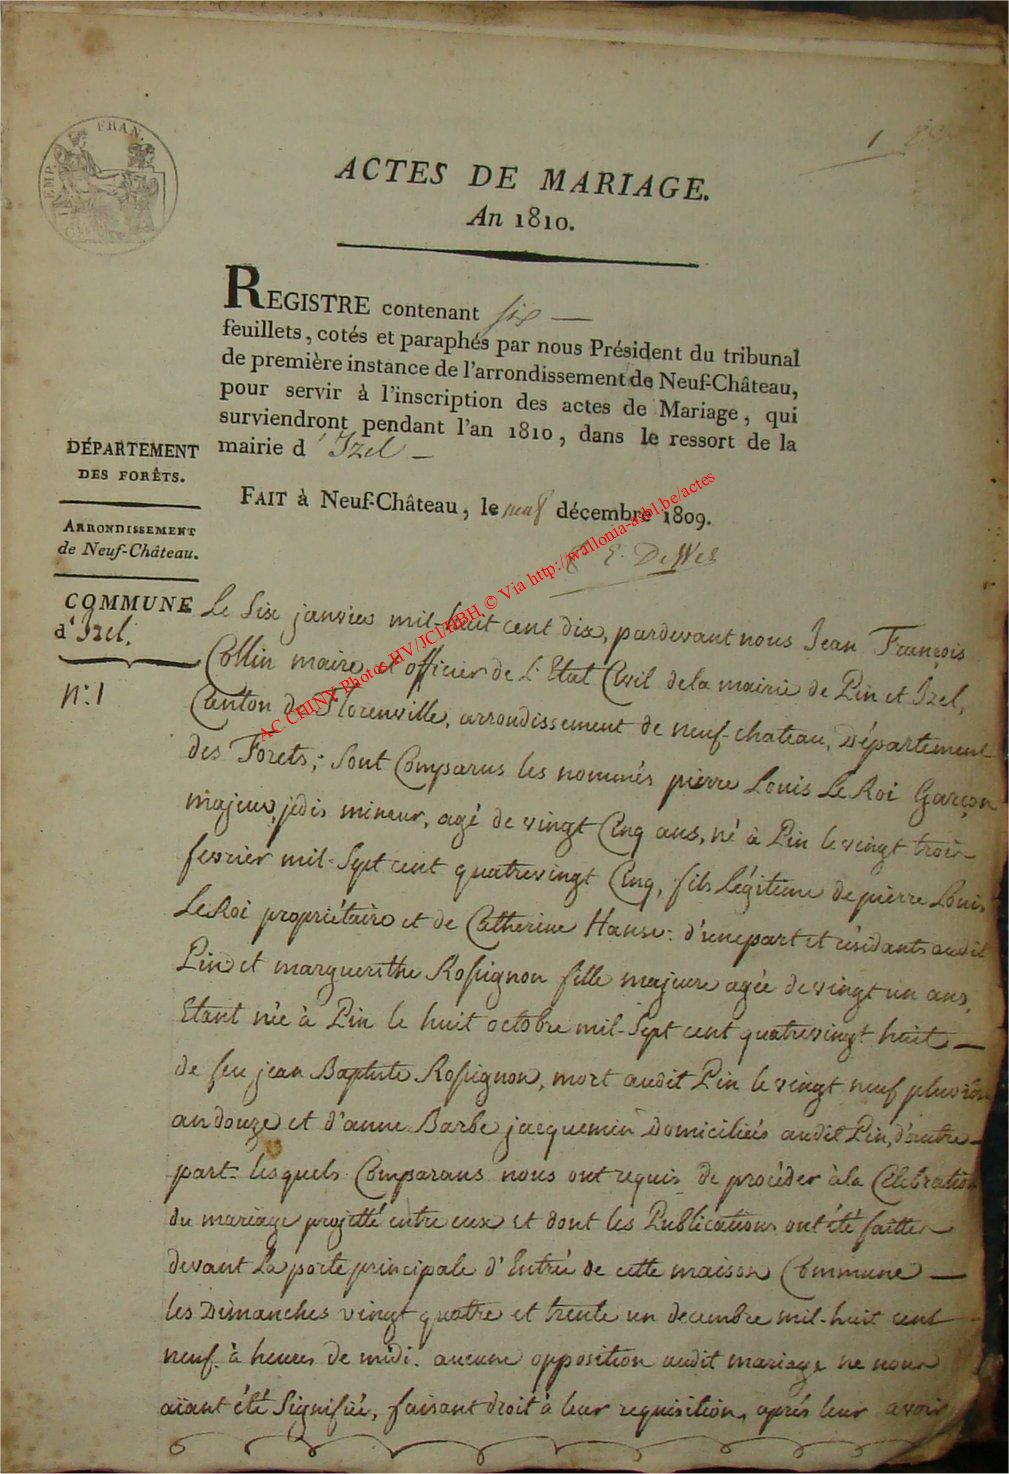 EMP. FRAN.
1
ACTES DE MARIAGE.
An 1810.
REGISTRE contenant six
feuillets, cotés et paraphés par nous Président du tribunal
de première instance de l'arrondissement de Neuf-Château,
pour servir à l'inscription des actes de Mariage, qui
surviendront pendant l'an 1810, dans le ressort de la
mairie d'Izel
FAIT à Neuf-Château, le neuf décembre 1809.
DÉPARTEMENT
DES FORÊTS.
ARRONDISSEMENT
de Neuf-Château.
COMMUNE
d'Izel.
n.º 1
AC CHINY Photos HV/JCI/HBH © Via http://wallonia-asbl.be/actes
Le Six janvier mil-huit cent dix, pardevant nous Jean François
Collin maire et officier de L'Etat Civil dela mairie de Pin et Izel,
Canton de Florenville, arrondissement de neuf-chateau, Département
des Forets; sont Comparus les nommés pierre Louis Le Roi Garçon
majeur, jedis mineur, agé de vingt Cinq ans, né à Pin le vingt trois
fevrier mil-Sept cent quatrevingt Cinq, fils légitime de pierre Louis
Le Roi propriétaire et de Catherine Hanse: d'unepart et résidants audit
Pin et marguerithe Rossignon fille majeure agée de vingt un ans,
Etant née à Pin le huit octobre mil-Sept cent quatrevingt huit
de feu jean Baptiste Rossignon, mort audit Pin le vingt neuf pluviôse
an douze et d'anne Barbe jacquemin Domiciliés audit Pin, d'autre
part. lesquels Comparans nous ont requis de procéder àla Célébration
du mariage projetté entre eux et dont les Publications ont été faittes
devant La porte principale d'Entrée de cette maison Commune
les Dimanches vingt quatre et trente un decembre mil-huit cent
neuf à heures de midi. aucune opposition audit mariage ne nous
aïant été Signifiée, faisant droit à leur requisition, après leur avoir